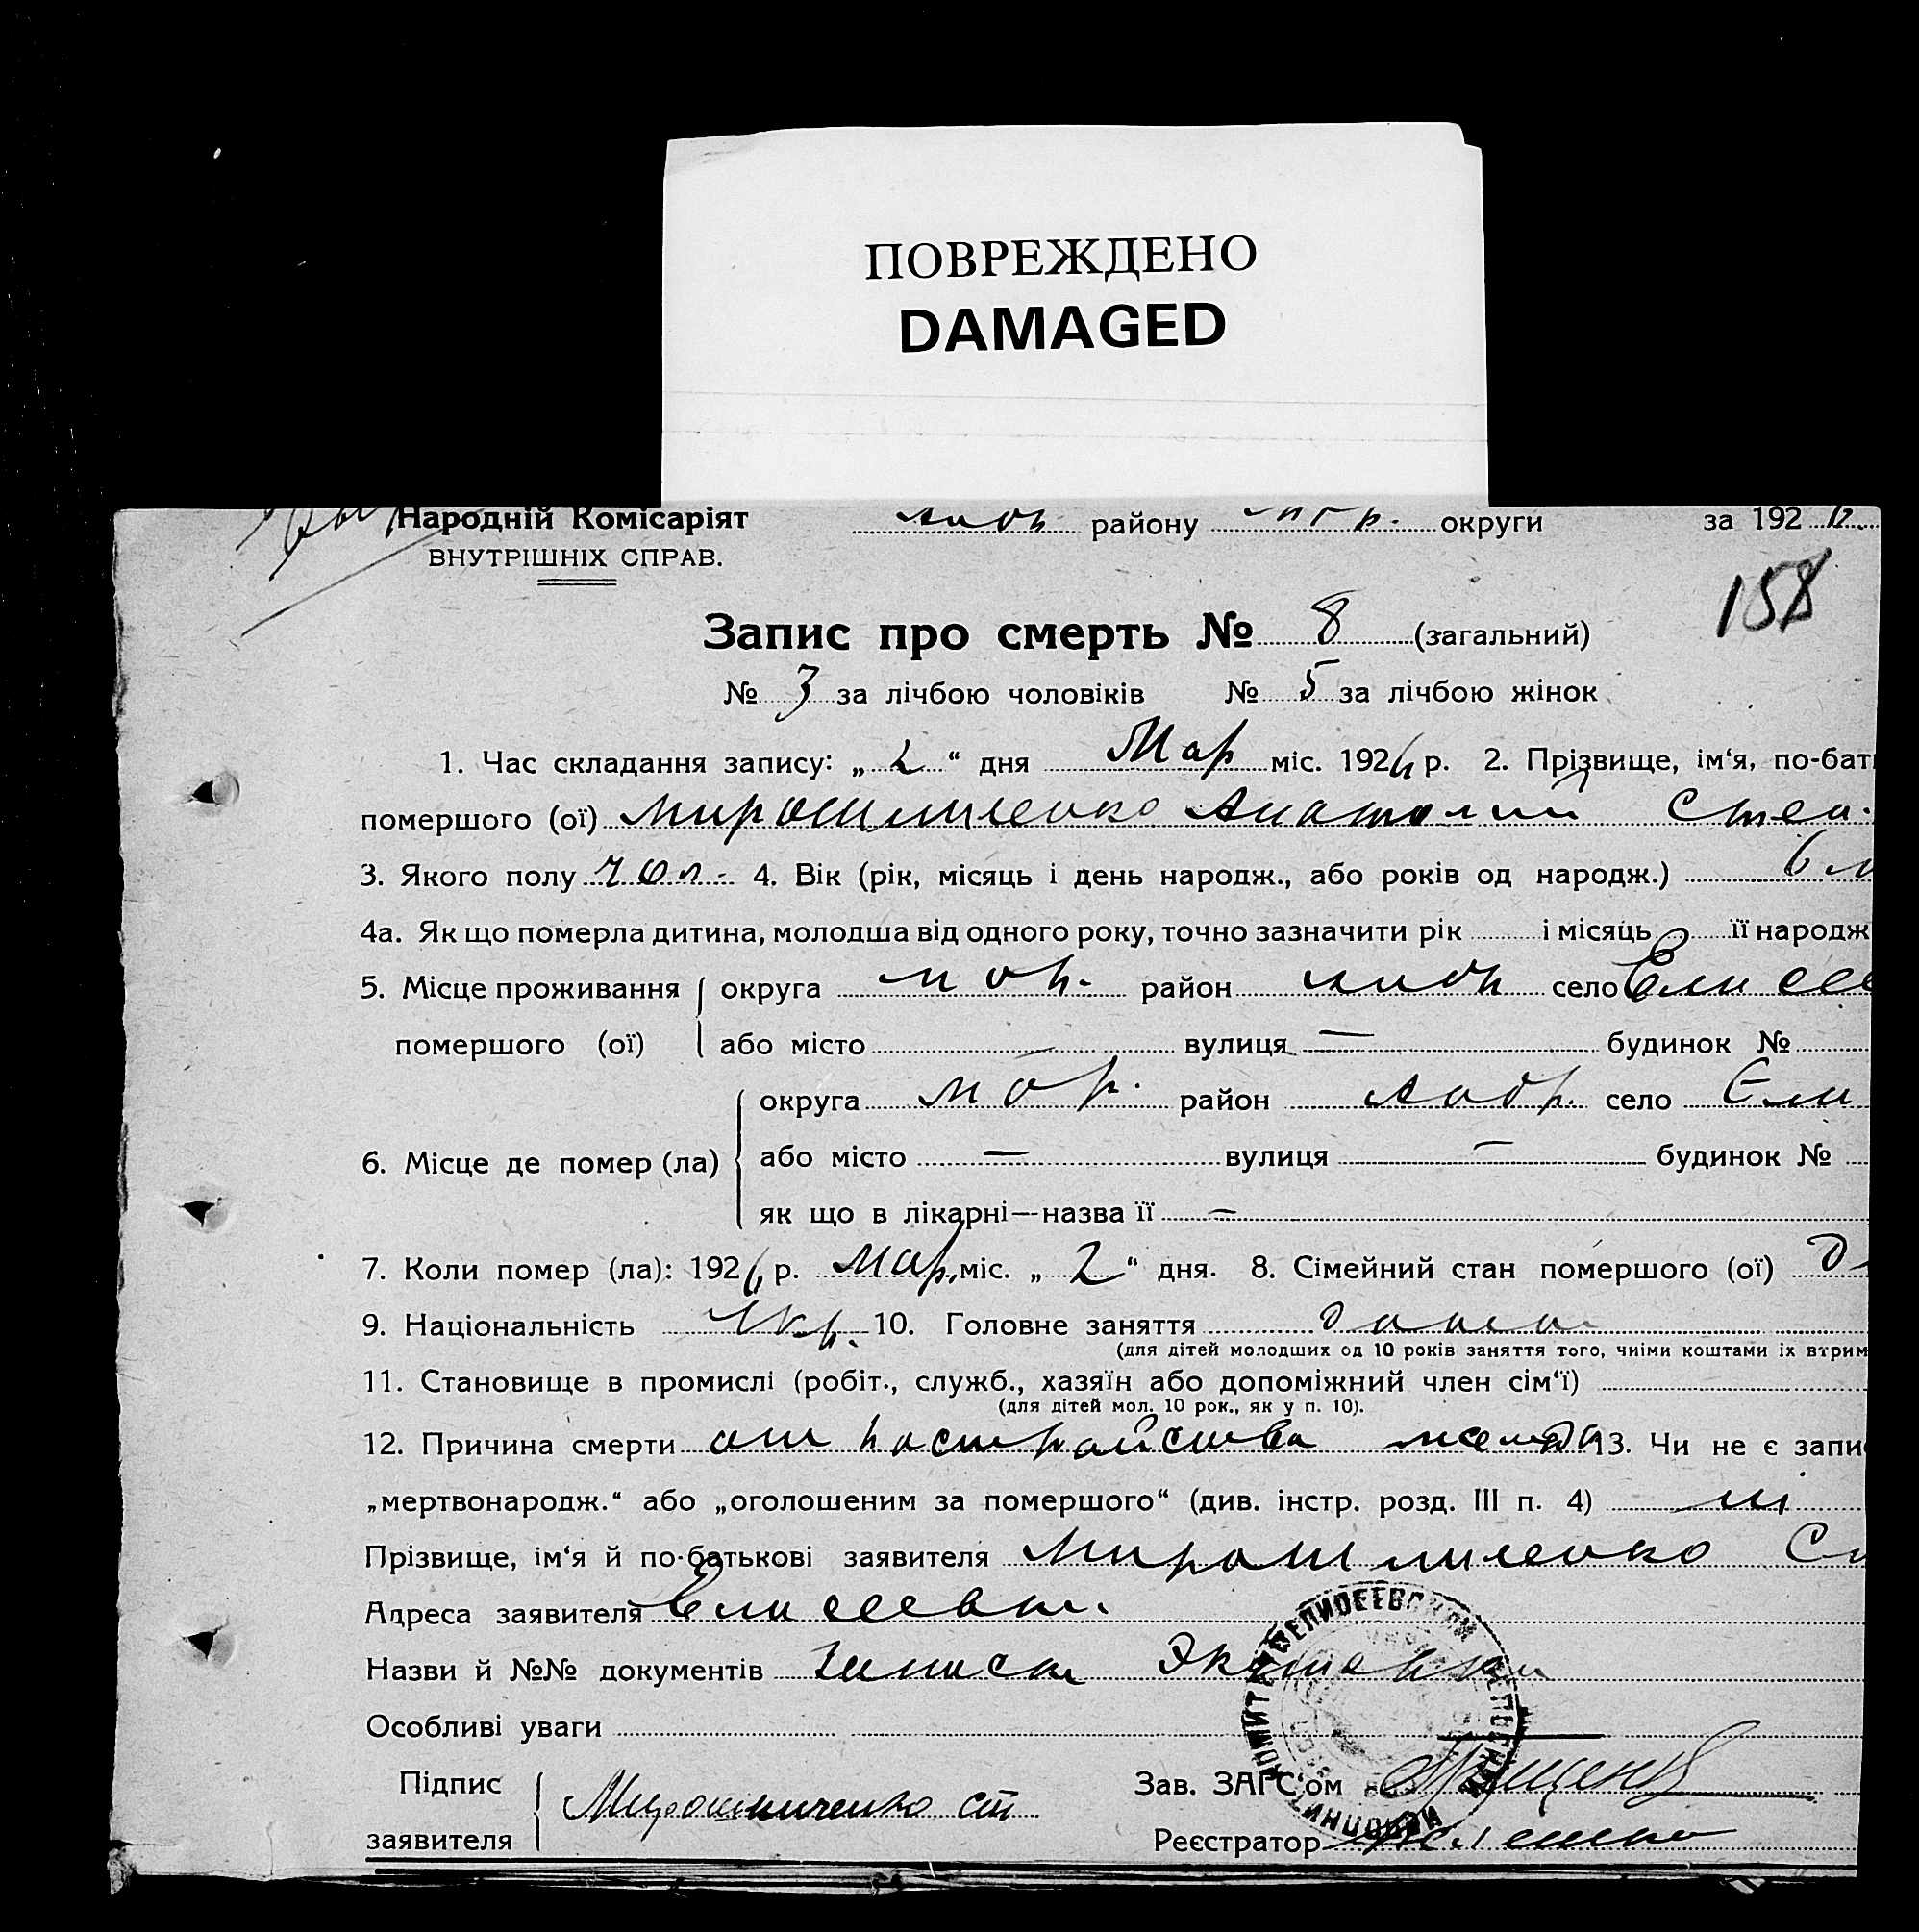 ПОВРЕЖДЕНО
DAMAGED
Народній Комісаріят району округи за 192
ВНУТРІШНІХ СПРАВ.
158
Запис про смерть № 8 (загальний)
№ 3 за лічбою чоловіків № 5 за лічбою жінок
1. Час складання запису: „ 2 “ дня Мар міс. 1926 р. 2. Прізвище, ім‘я, по-бат
помершого (ої) Мирошниченко Анатолий Степ.
3. Якого полу чол. 4. Вік (рік, місяць і день народж., або років од народж.) 6 м
4а. Як що померла дитина, молодша від одного року, точно зазначити рік і місяць її народж
5. Місце проживання округа район село Елисее
помершого (ої) або місто — вулиця — будинок №
округа район село Ели
6. Місце де помер (ла) або місто — вулиця — будинок №
як що в лікарні—назва її —
7. Коли помер (ла): 1926 р. Мар. міс. „ 2 “ дня. 8. Сімейний стан помершого (ої)
9. Національність Укр. 10. Головне заняття
(для дітей молодших од 10 років заняття того, чиїми коштами їх втрим
11. Становище в промислі (робіт., служб., хазяїн або допоміжний член сім‘ї)
(для дітей мол. 10 рок., як у п. 10).
12. Причина смерти от растройства желуд 13. Чи не є запи
„мертвонародж.“ або „оголошеним за помершого“ (див. інстр. розд. III п. 4) ні
Прізвище, ім‘я й по-батькові заявителя Мирошниченко Ст
Адреса заявителя Елисеевка
Назви й №№ документів
Особливі уваги
Підпис Мирошниченко ст Зав. ЗАГС‘ом
заявителя Реєстратор